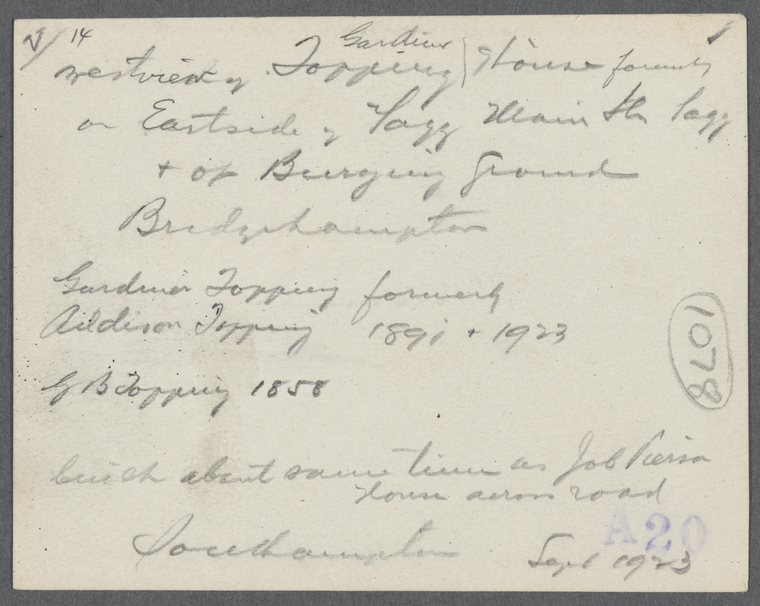 14
Gardiner
west view of Topping House formerly
on East side of Sagg Main St Sagg
+ of Burying Ground
Bridgehampton
Gardiner Topping formerly
Addison Topping 1891 + 1923
G B Topping 1858
1078
built about same time as Job Pierson
House across road
Southampton Sept 1923
A20